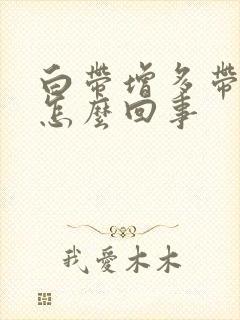 白帶增多帶
怎麼回事
我愛木木